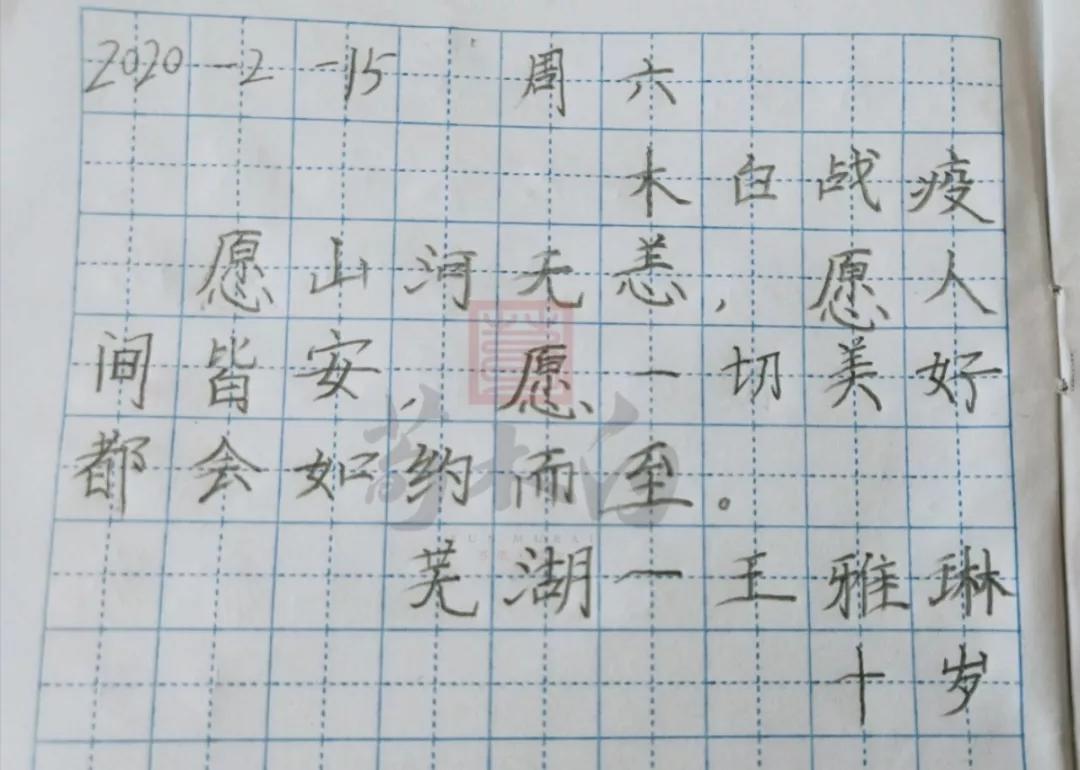 2020-2-15 周六
木白战疫
愿山河无恙，愿人
间皆安，愿一切美好
都会如约而至。
芜湖一王雅琳
十岁